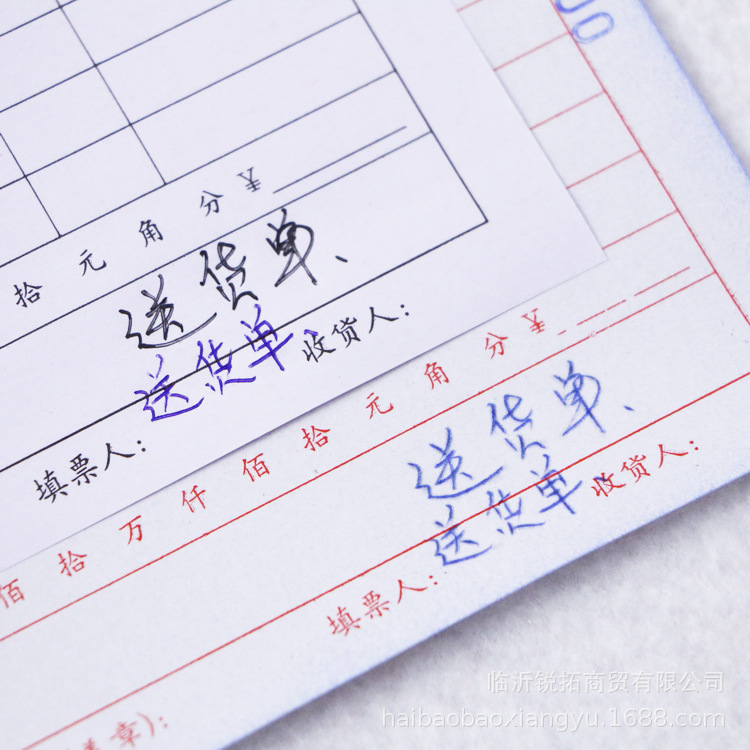 拾 元 角 分 ¥
送货单、
送货单、
填票人: 收货人:
佰 拾 万 仟 佰 拾 元 角 分 ¥
送货单、
送货单、
填票人: 收货人:
章):
临沂锐拓商贸有限公司
haibaobaoxiangyu.1688.com